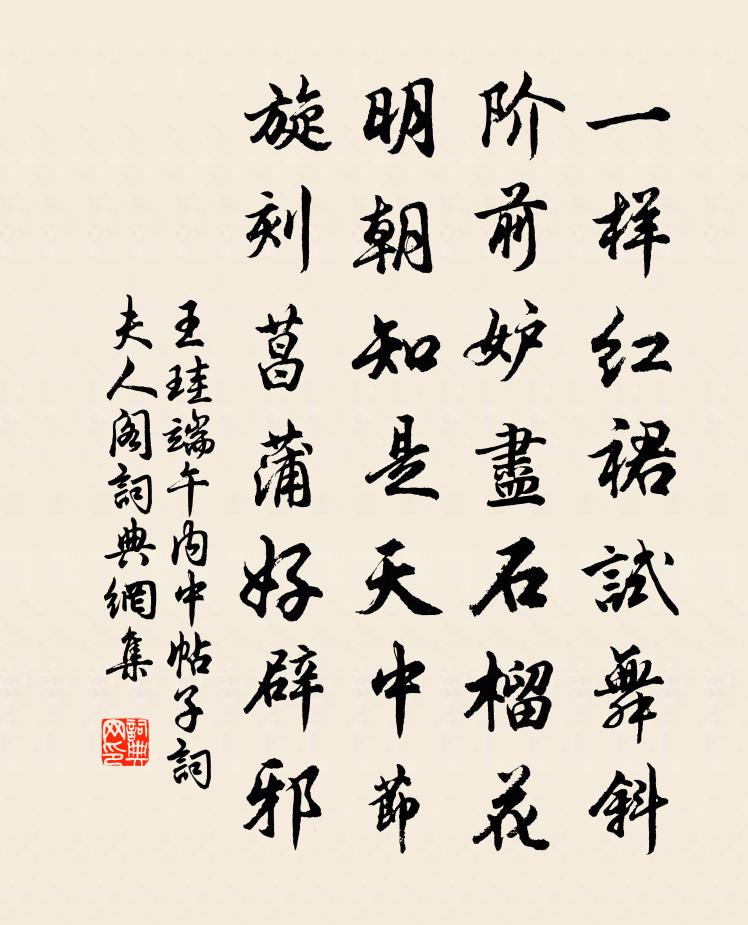 一样红裙試舞斜
阶前妒盡石榴花
明朝知是天中節
旋刻菖蒲好辟邪
王珪端午内中帖子詞
夫人阁詞典網集
詞典
网印